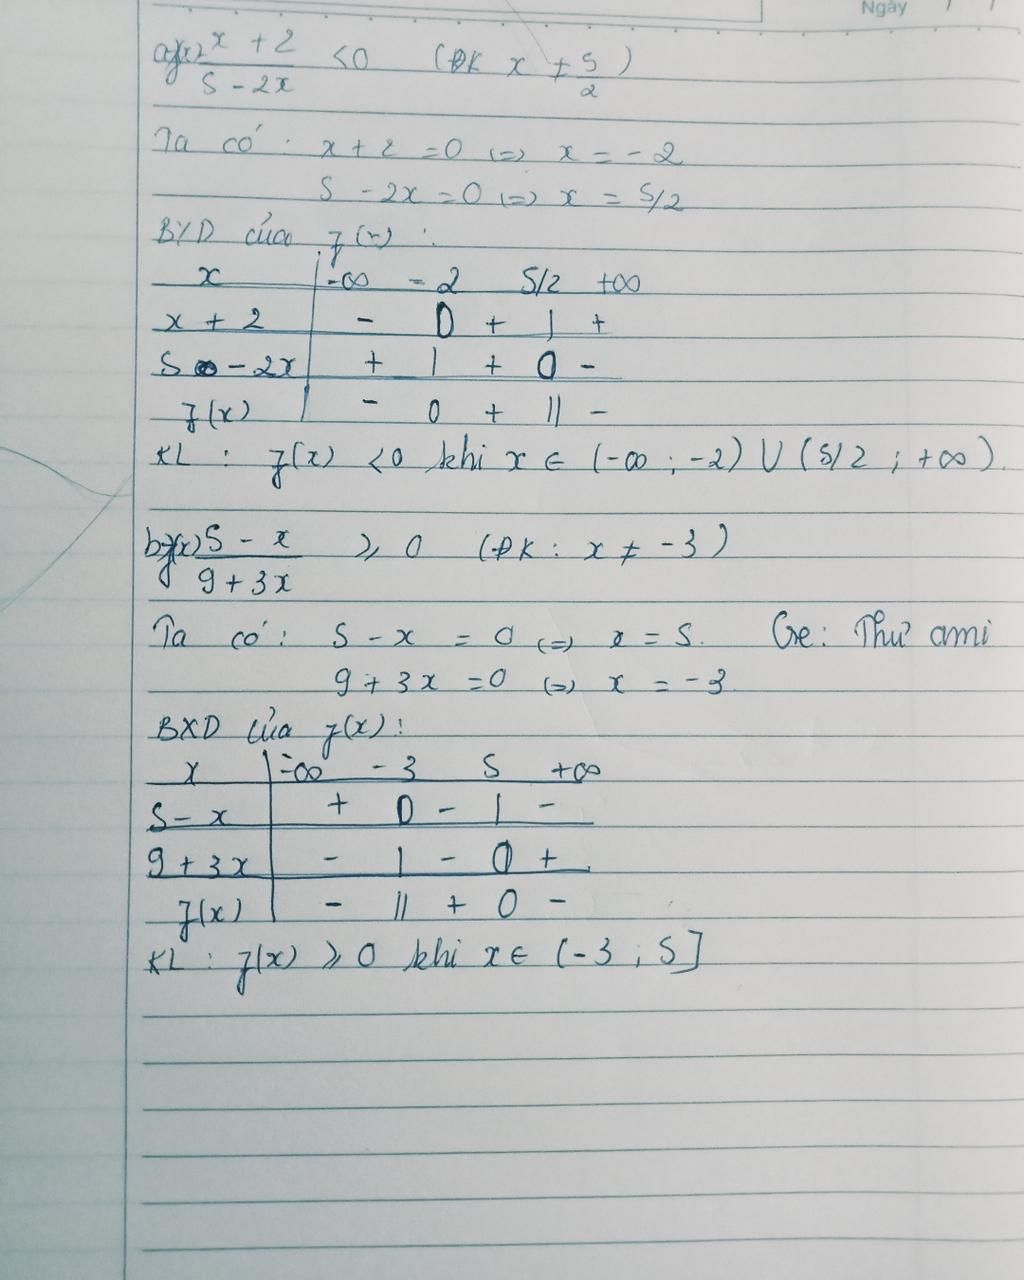 Ngày / /
a) f(x) = x + 2 / 5 - 2x < 0 (ĐK x ≠ 5/2)
Ta có : x + 2 = 0 (=) x = - 2
5 - 2x = 0 (=) x = 5/2
BXD của f(x) :
x -∞ - 2 5/2 +∞
x + 2 - 0 + | +
5 - 2x + | + 0 -
f(x) - 0 + || -
KL : f(x) < 0 khi x ∈ (-∞ ; -2) ∪ (5/2 ; +∞).
b) f(x) 5 - x / 9 + 3x ≥ 0 (ĐK : x ≠ -3)
Ta có : 5 - x = 0 (=) x = 5. Cre : Thư ami
9 + 3x = 0 (=) x = -3.
BXD của f(x) :
x -∞ - 3 5 +∞
5 - x + 0 - | -
9 + 3x - | - 0 +
f(x) - || + 0 -
KL : f(x) ≥ 0 khi x ∈ (-3 ; 5]